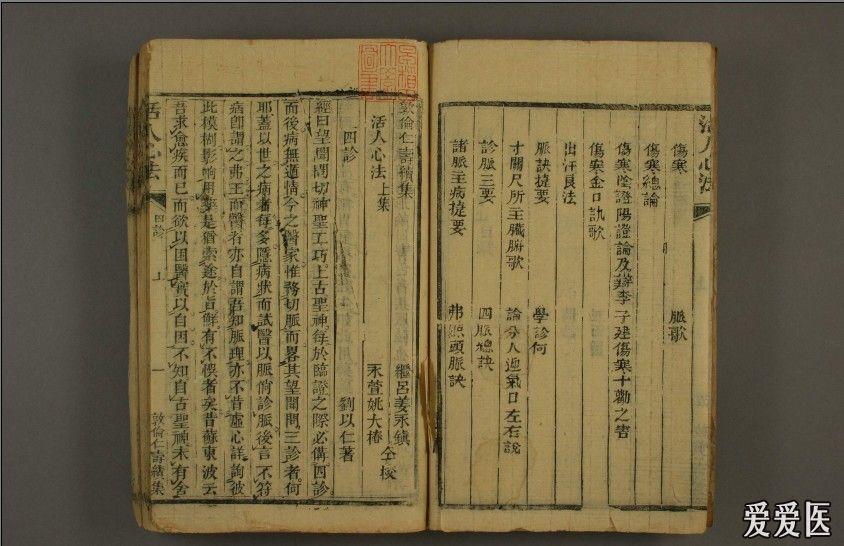 活人心法
傷寒 脈歌
傷寒總論
傷寒陰證陽證論及辯李子建傷寒十勸之害
傷寒金口訣歌
出汗良法
脈訣提要 學診何
寸關尺所主臟腑歌 論分人迎氣口左右說
診脈三要 四脈總訣
諸脈主病提要
敦倫仁壽續集 繼呂姜永鎮
活人心法上集 永萱姚大椿 仝校
四診 劉以仁著
經曰望聞問切神聖工巧上古聖神每於臨證之際必備四診
而後病無遁情今之醫家惟務切脈而畧其望聞問三診者何
耶蓋以世之病者每多隱病狀而試醫以脈俏診脈後言不符
病卽謂之弗工而醫者亦自謂吾知脈理亦不肯虛心詳詢彼
此模糊影响用藥是猶索途於盲鮮有不悞者矣昔蘇東波云
吾求愈疾而已而欲以困醫實以自困不知自古聖神未有舍
活人心法 四診 上 一 敦倫仁壽續集
爱爱医